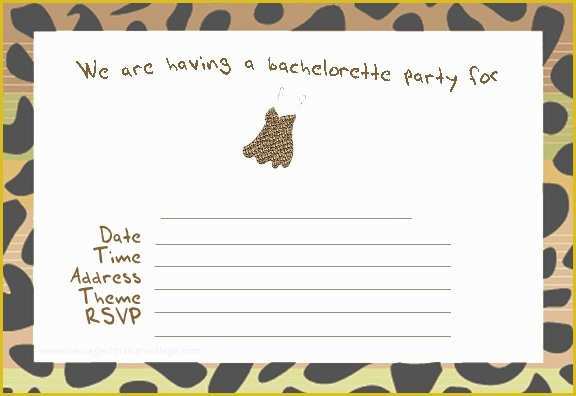 We are having a bachelorette party for
Date
Time
Address
Theme
RSVP